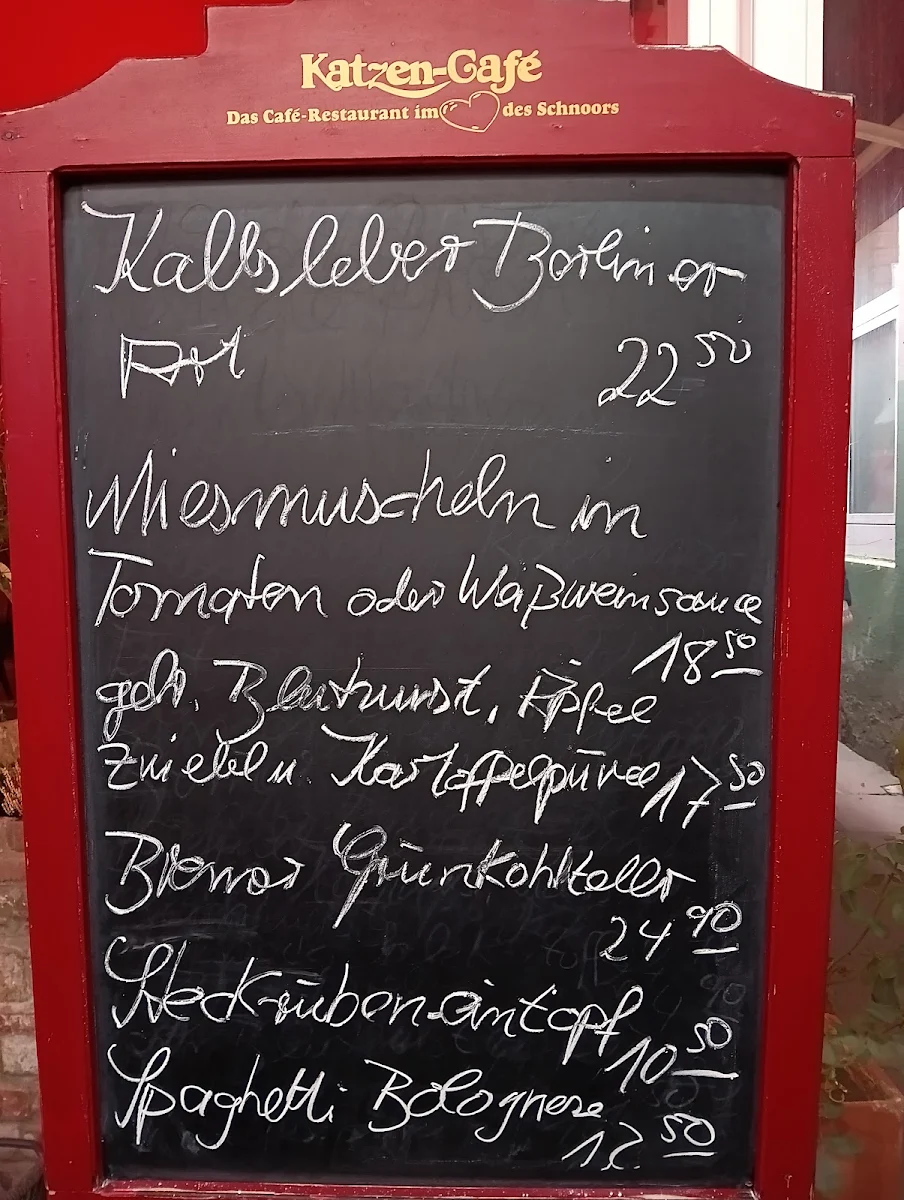 Katzen-Café
Das Café-Restaurant im des Schnoors
Kalbsleber Berliner
Art 22 50
Miesmuscheln in
Tomaten oder Waißweinsauce
18 50
gebr. Blutwurst, Äpfel
Zwiebel u. Kartoffelpüree 17 50
Bremer Grünkohlteller
24 90
Steckrübeneintopf
10 50
Spaghetti Bolognese
12 50